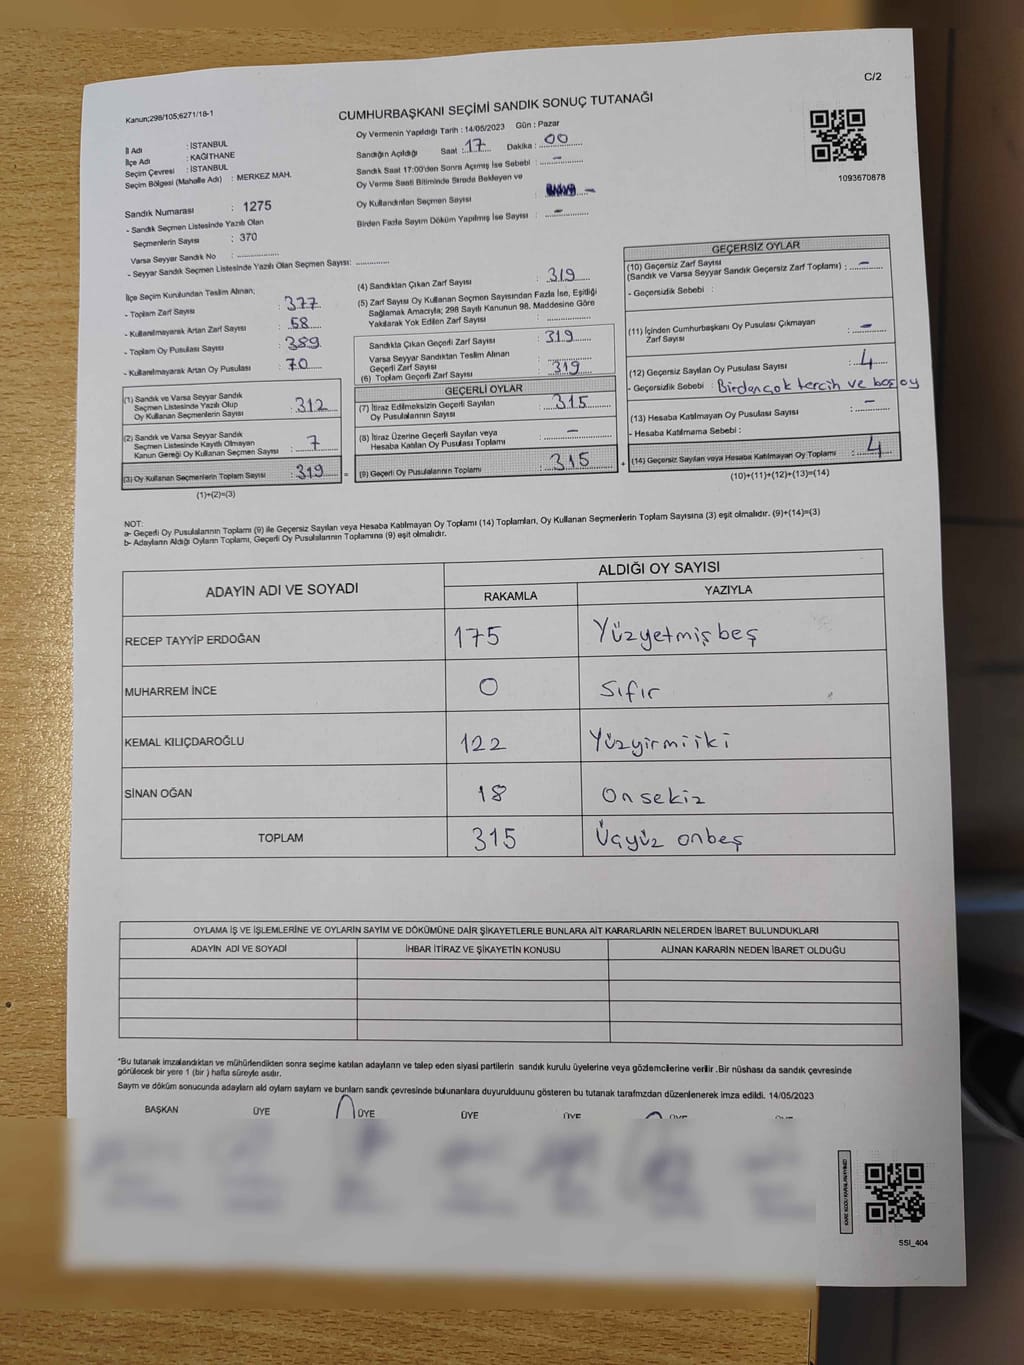 C/2
Kanun;298/105;6271/18-1
CUMHURBAŞKANI SEÇİMİ SANDIK SONUÇ TUTANAĞI
İl Adı : İSTANBUL
İlçe Adı : KAĞITHANE
Seçim Çevresi : İSTANBUL
Seçim Bölgesi (Mahalle Adı) : MERKEZ MAH.
Oy Vermenin Yapıldığı Tarih : 14/05/2023 Gün : Pazar
Sandığın Açıldığı Saat : 17 Dakika : 00
Sandık Saat 17:00'den Sonra Açımış İse Sebebi : -
Oy Verme Saati Bitiminde Sırada Bekleyen ve
Oy Kullandırılan Seçmen Sayısı : -
Birden Fazla Sayım Döküm Yapılmış İse Sayısı : -
1093670878
Sandık Numarası : 1275
- Sandık Seçmen Listesinde Yazılı Olan
Seçmenlerin Sayısı : 370
Varsa Seyyar Sandık No :
- Seyyar Sandık Seçmen Listesinde Yazılı Olan Seçmen Sayısı:
İlçe Seçim Kurulundan Teslim Alınan;
- Toplam Zarf Sayısı : 377
- Kullanılmayarak Artan Zarf Sayısı : 58
- Toplam Oy Pusulası Sayısı : 389
- Kullanılmayarak Artan Oy Pusulası : 70
(1) Sandık ve Varsa Seyyar Sandık
Seçmen Listesinde Yazılı Olup
Oy Kullanan Seçmenlerin Sayısı : 312
(2) Sandık ve Varsa Seyyar Sandık
Seçmen Listesinde Kayıtlı Olmayan
Kanun Gereği Oy Kullanan Seçmen Sayısı : 7
(3) Oy Kullanan Seçmenlerin Toplam Sayısı : 319 =
(1)+(2)=(3)
(4) Sandıktan Çıkan Zarf Sayısı : 319
(5) Zarf Sayısı Oy Kullanan Seçmen Sayısından Fazla İse, Eşitliği
Sağlamak Amacıyla; 298 Sayılı Kanunun 98. Maddesine Göre
Yakılarak Yok Edilen Zarf Sayısı :
Sandıkla Çıkan Geçerli Zarf Sayısı : 319
Varsa Seyyar Sandıktan Teslim Alınan
Geçerli Zarf Sayısı :
(6) Toplam Geçerli Zarf Sayısı : 319
GEÇERLİ OYLAR
(7) İtiraz Edilmeksizin Geçerli Sayılan
Oy Pusulasının Sayısı : 315
(8) İtiraz Üzerine Geçerli Sayılan veya
Hesaba Katılan Oy Pusulası Toplamı : -
(9) Geçerli Oy Pusulalarının Toplamı : 315 +
GEÇERSİZ OYLAR
(10) Geçersiz Zarf Sayısı
(Sandık ve Varsa Seyyar Sandık Geçersiz Zarf Toplamı) : -
- Geçersizlik Sebebi :
(11) İçinden Cumhurbaşkanı Oy Pusulası Çıkmayan
Zarf Sayısı : -
(12) Geçersiz Sayılan Oy Pusulası Sayısı : 4
- Geçersizlik Sebebi : Birden çok tercih ve boş oy
(13) Hesaba Katılmayan Oy Pusulası Sayısı : -
- Hesaba Katılmama Sebebi :
(14) Geçersiz Sayılan veya Hesaba Katılmayan Oy Toplamı : 4
(10)+(11)+(12)+(13)=(14)
NOT:
a- Geçerli Oy Pusulalarının Toplamı (9) ile Geçersiz Sayılan veya Hesaba Katılmayan Oy Toplamı (14) Toplamları, Oy Kullanan Seçmenlerin Toplam Sayısına (3) eşit olmalıdır. (9)+(14)=(3)
b- Adayların Aldığı Oyların Toplamı, Geçerli Oy Pusulalarının Toplamına (9) eşit olmalıdır.
ADAYIN ADI VE SOYADI
ALDIĞI OY SAYISI
RAKAMLA YAZIYLA
RECEP TAYYİP ERDOĞAN 175 Yüzyetmişbeş
MUHARREM İNCE 0 Sıfır
KEMAL KILIÇDAROĞLU 122 Yüzyirmiiki
SİNAN OĞAN 18 Onsekiz
TOPLAM 315 Üçyüz onbeş
OYLAMA İŞ VE İŞLEMLERİNE VE OYLARIN SAYIM VE DÖKÜMÜNE DAİR ŞİKAYETLERLE BUNLARA AİT KARARLARIN NELERDEN İBARET BULUNDUKLARI
ADAYIN ADI VE SOYADI İHBAR İTİRAZ VE ŞİKAYETİN KONUSU ALINAN KARARIN NEDEN İBARET OLDUĞU
*Bu tutanak imzalandıktan ve mühürlendikten sonra seçime katılan adayların ve talep eden siyasi partilerin sandık kurulu üyelerine veya gözlemcilerine verilir .Bir nüshası da sandık çevresinde
görülecek bir yere 1 (bir ) hafta süreyle asılır.
Sayım ve döküm sonucunda adayların ald oyların sayların ve bunların sandk çevresinde bulunanlara duyurulduunu gösteren bu tutanak tarafmzdan düzenlenerek imza edildi. 14/05/2023
BAŞKAN ÜYE ÜYE ÜYE ÜYE ÜYE
SSI_404